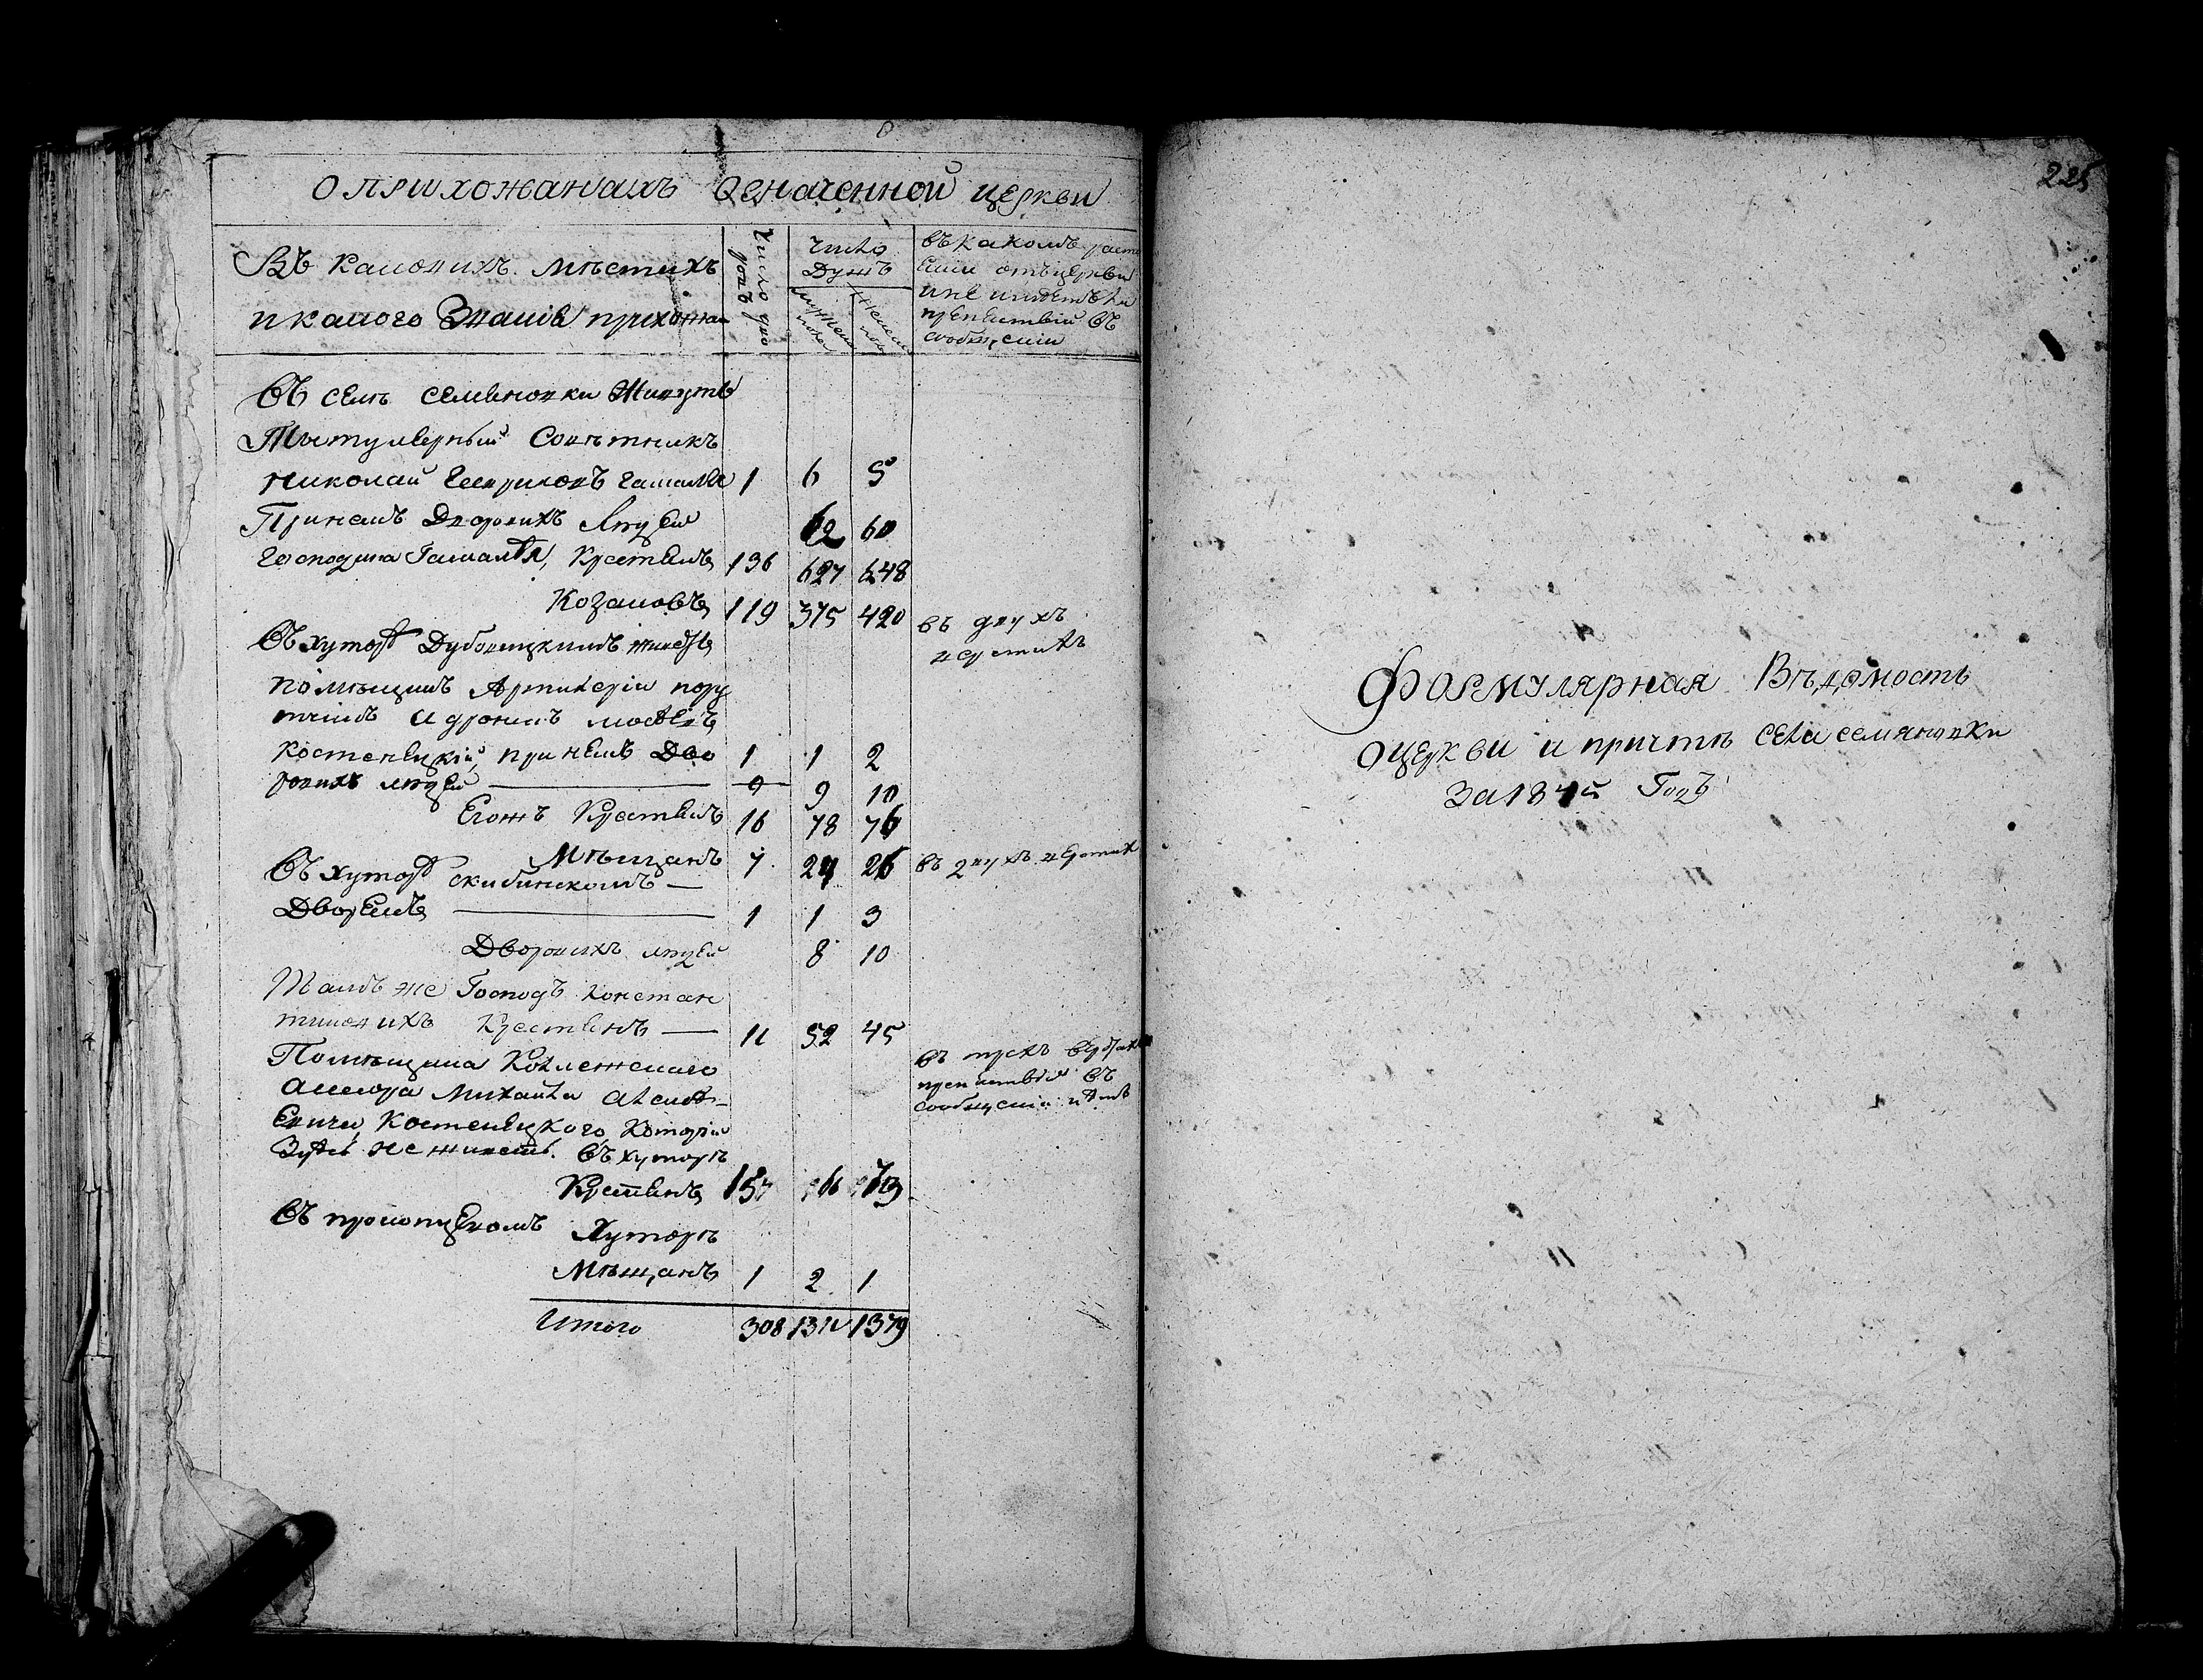 О прихожанахъ Означенной церкви
Въ каковихъ мѣстихъ
и какого Званія прихожа
Число дво
ровъ
Число
Душъ
мужеска
пола
Женск
пол
въ какомъ расто
Еніи отъ церкви
и не имѣетъ ли
препятствій въ
сообщеніи
Въ селѣ Семеновки Живутъ
Тытулярный Совѣтникъ
Николай Гавриловъ Гамалѣя 1 6 5
При немъ Дворовихъ Людей 62 60
Господина Гамалѣя, Крестьянъ 136 627 648
Козаковъ 119 375 420
въ двух
верстахъ
Въ хуторѣ Дубовицкимъ живетъ
помѣщикъ Артилеріи пору
тчикъ Андроникъ
Костенецкій, при немъ Дво 1 1 2
ровихъ людей 9 9 10
Егожъ Крестьянъ 16 78 76
Мѣщанъ 7 24 26 въ двухъ верстах
Въ хуторѣ скибинскомъ
Дворянъ 1 1 3
Дворовихъ людей 8 10
Тамъ же Господъ Констан
тиновихъ Крестьянъ 11 52 45
Помѣщика Колежского
Асесора Михайла Алексѣ
Евича Костенецкого, Который
Здѣсь не живетъ. Въ хуторѣ
въ трехъ верстах
препятствія въ
сообщеніи нѣтъ
Крестьянъ 157 66 73
Въ прокопцевомъ Хуторѣ
Мѣщанъ 1 2 1
Итого 308 1311 1379
225
Формулярная Вѣдомость
о церкви и причтѣ села семяновки
За 184й Годъ